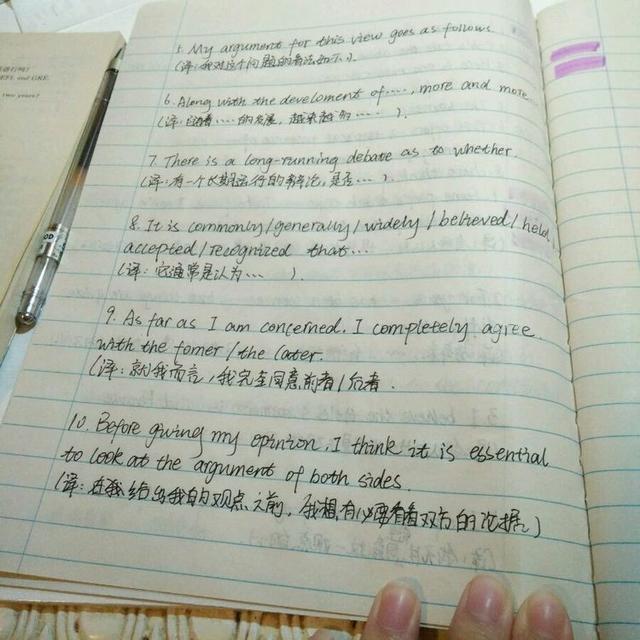 5. My argument for this view goes as follows
(译:我对这个问题的看法如下).
6. Along with the develoment of...., more and more
(译:随着....的发展, 越来越的.... ).
7. There is a long-running debate as to whether.
(译:有一个长期运行的辩论, 是否... ).
8. It is commonly/generally/widely/believed/held
accepted/recognized that...
(译:它通常是认为... ).
9. As far as I am concerned. I completely agree.
with the fomer/the later.
(译:就我而言, 我完全同意前者/后者.
10. Before giving my opinion. I think it is essential
to look at the argument of both sides.
(译:在我给出我的观点之前, 我想有必要看看双方的论据.)
and GRE.
two years?